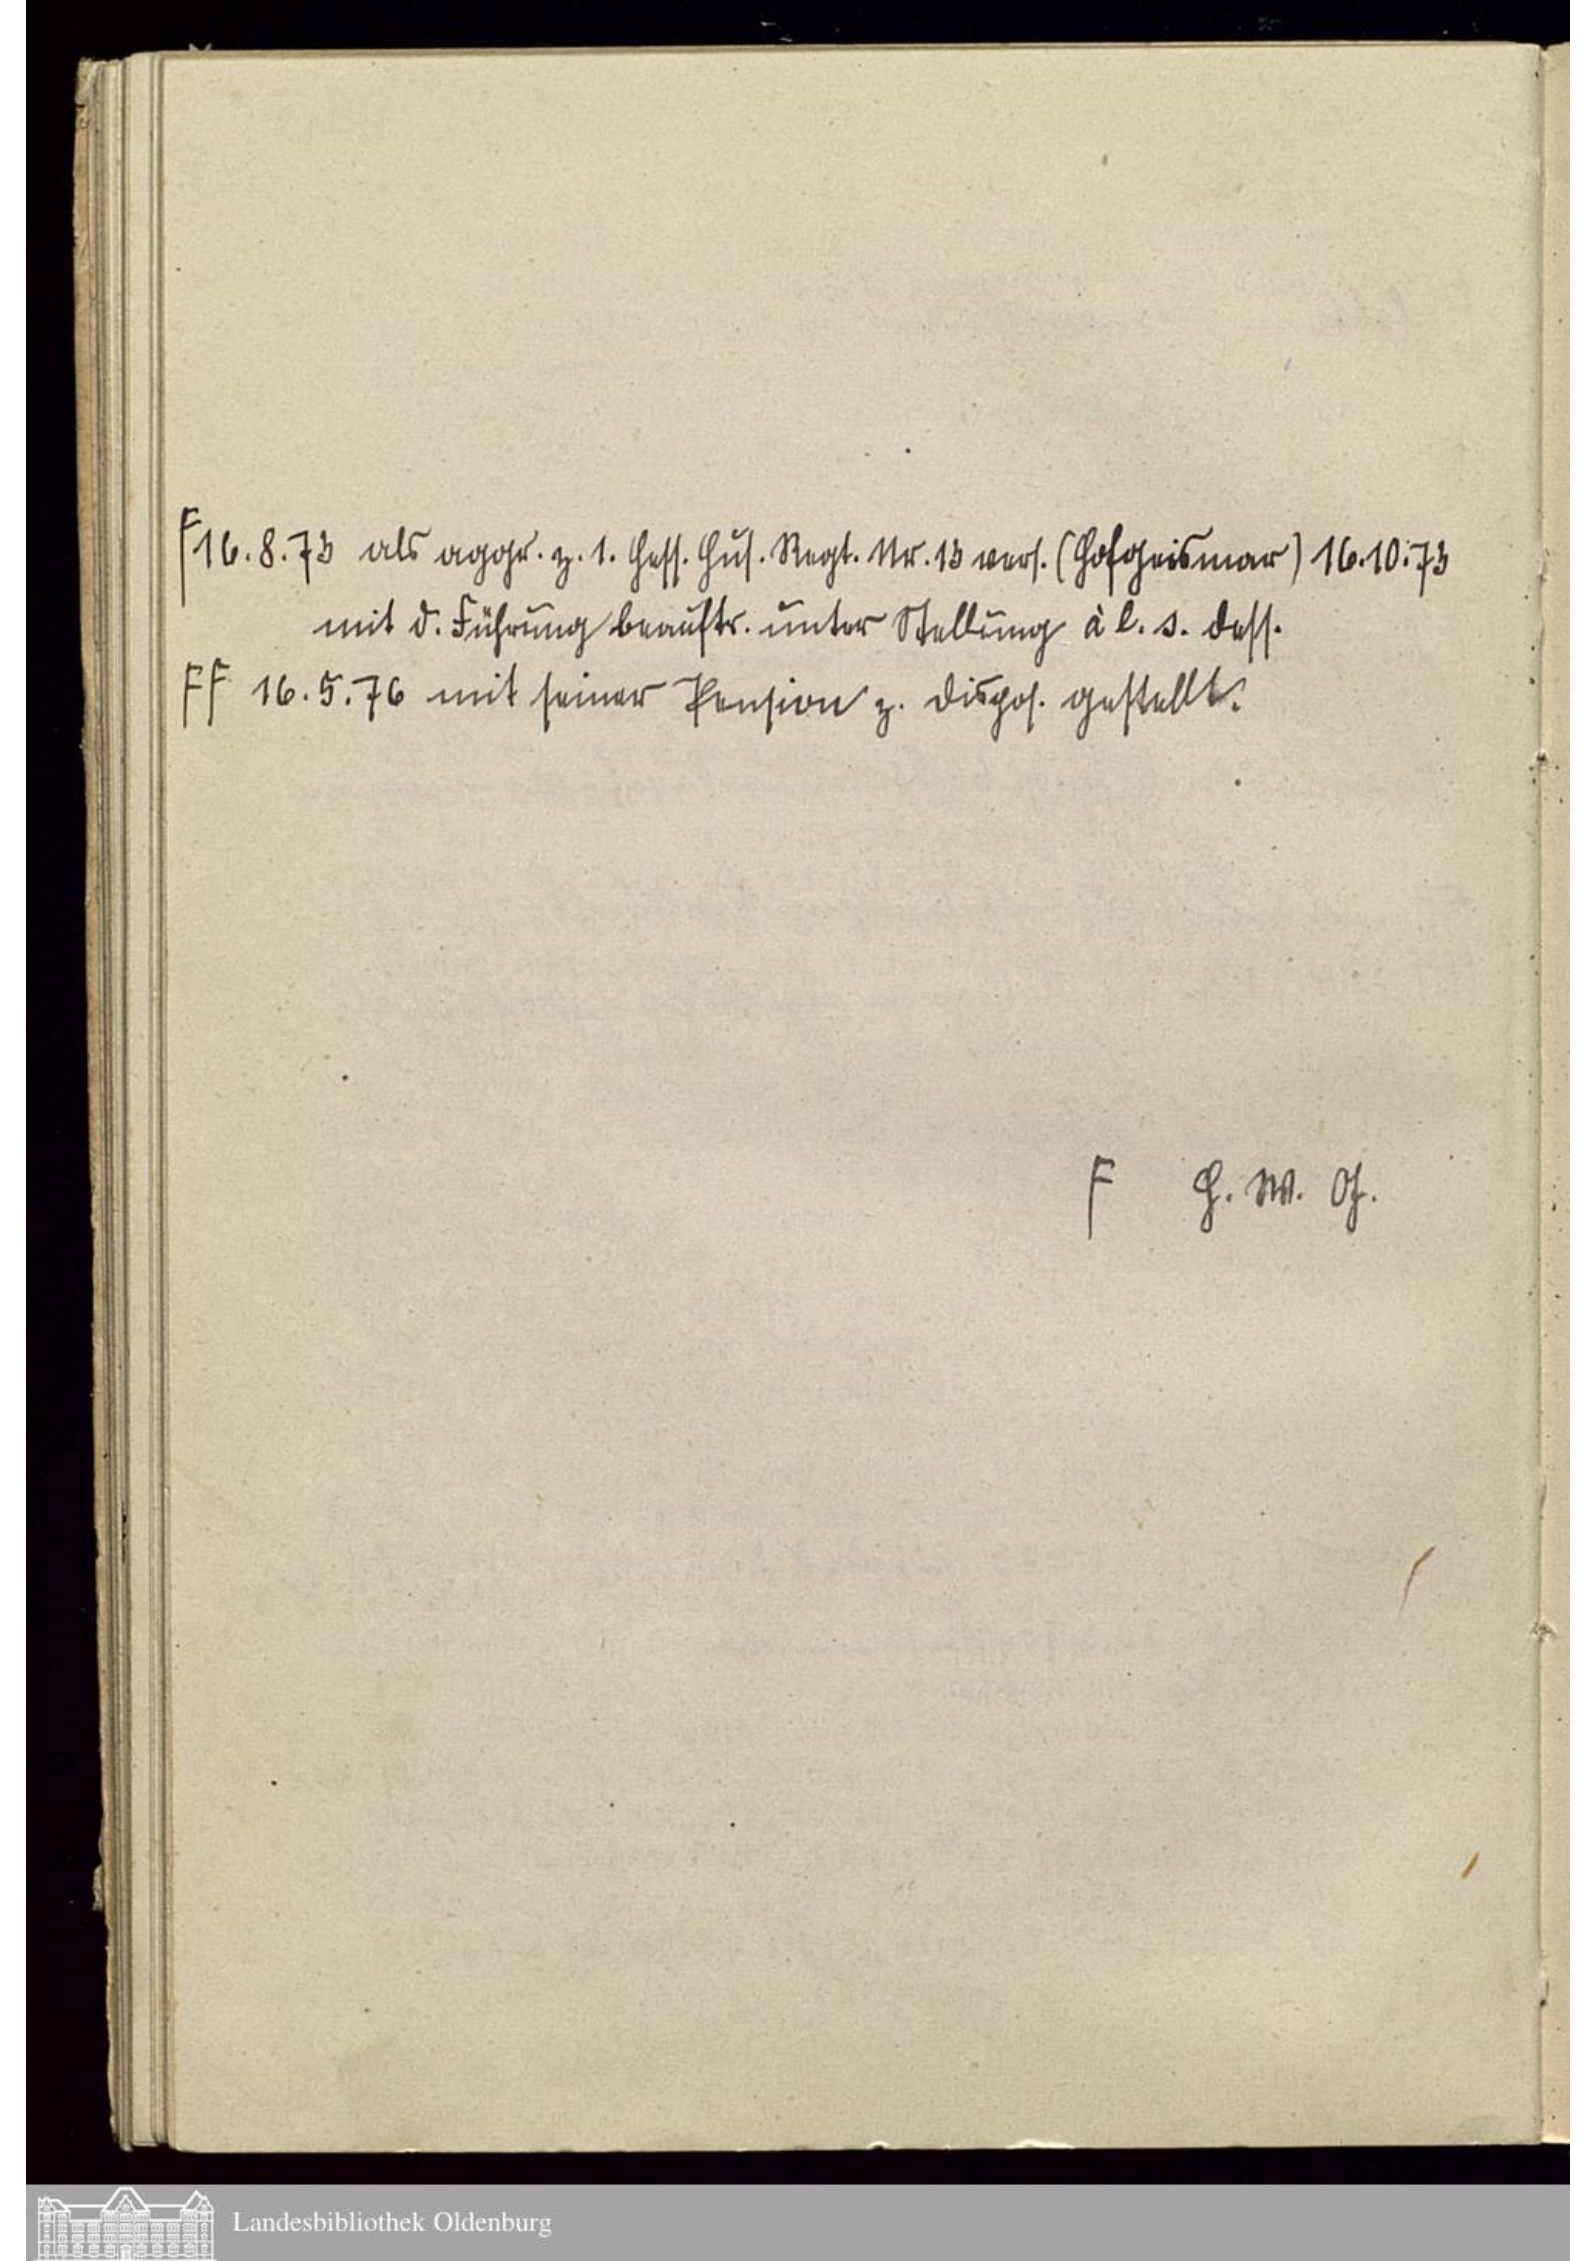 F 16.8.73 als aggr. z. 1. Hess. Hus. Regt. Nr. 13 vers. (Hofgeismar) 16.10.73
mit d. Führung beauftr. unter Stellung à l. s. dess.
FF 16.5.76 mit seiner Pension z. Dispos. gestellt.
F H. W. G.
Landesbibliothek Oldenburg